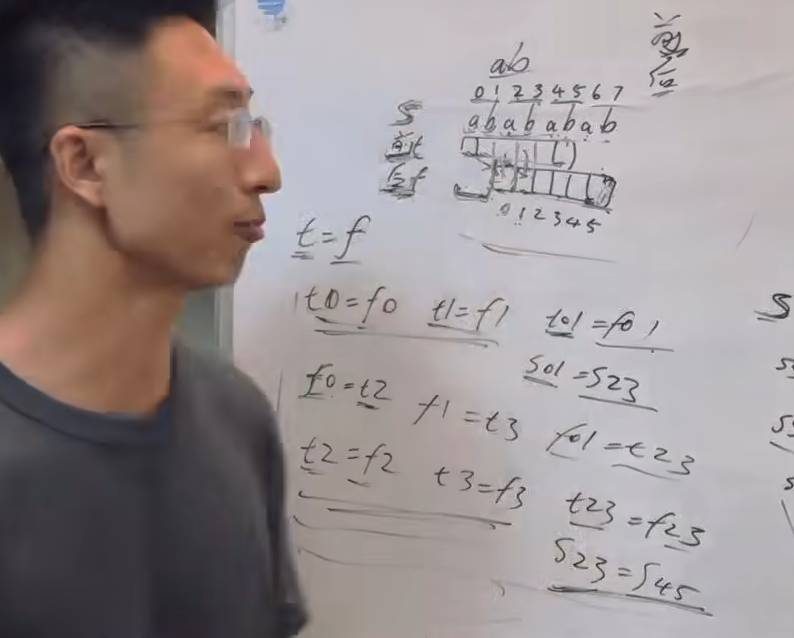 ab
0 1 2 3 4 5 6 7
S
a b a b a b a b
前 t
后 f
0 1 2 3 4 5
t = f
t0 = f0 t1 = f1 t01 = f01
S01 = S23
f0 = t2 f1 = t3 f01 = t23
t2 = f2 t3 = f3 t23 = f23
S23 = S45
S